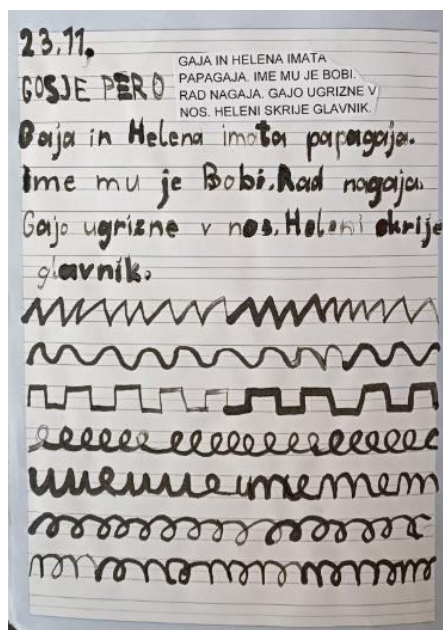 23.11.
GOSJE PERO
GAJA IN HELENA IMATA
PAPAGAJA. IME MU JE BOBI.
RAD NAGAJA. GAJO UGRIZNE V
NOS. HELENI SKRIJE GLAVNIK.
Gaja in Helena imata papagaja.
Ime mu je Bobi. Rad nagaja.
Gajo ugrizne v nos. Heleni skrije
glavnik.